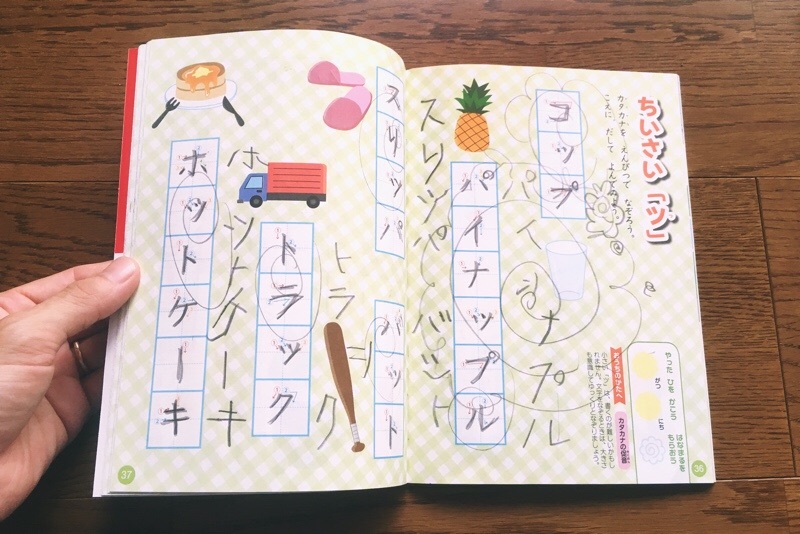 ちいさい「ッ」
カタカナを えんぴつで なぞろう。
こえに だして よんでみよう。
コップ
パイナップル
パイナップル
スリッパ
やった ひを かこう
がつ
にち
はなまるを
もらおう
おうちのかたへ
カタカナの促音
小さい「ッ」は、書くのが難しいかもし
れません。文字をなぞるときは、大きさ
も意識してゆっくりとなぞりましょう。
36
スリッパ
バット
バット
トラック
トラック
ホットケーキ
ホットケーキ
37